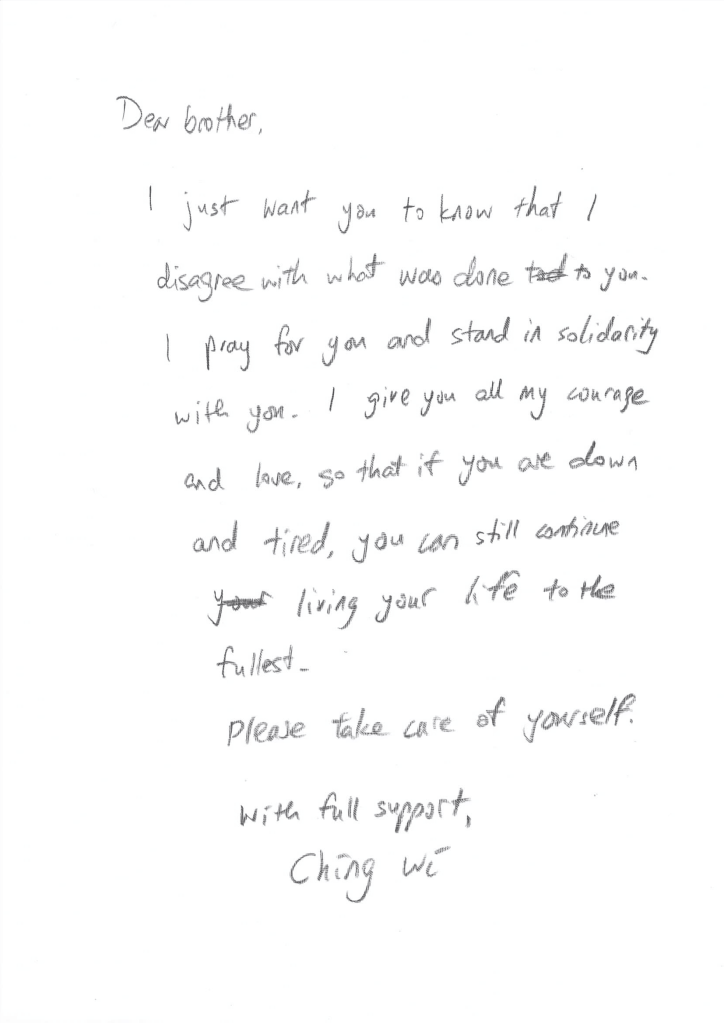 Dear brother,
I just want you to know that I
disagree with what was done to you.
I pray for you and stand in solidarity
with you. I give you all my courage
and love, so that if you are down
and tired, you can still continue
living your life to the
fullest.
Please take care of yourself.
With full support,
Ching Wi